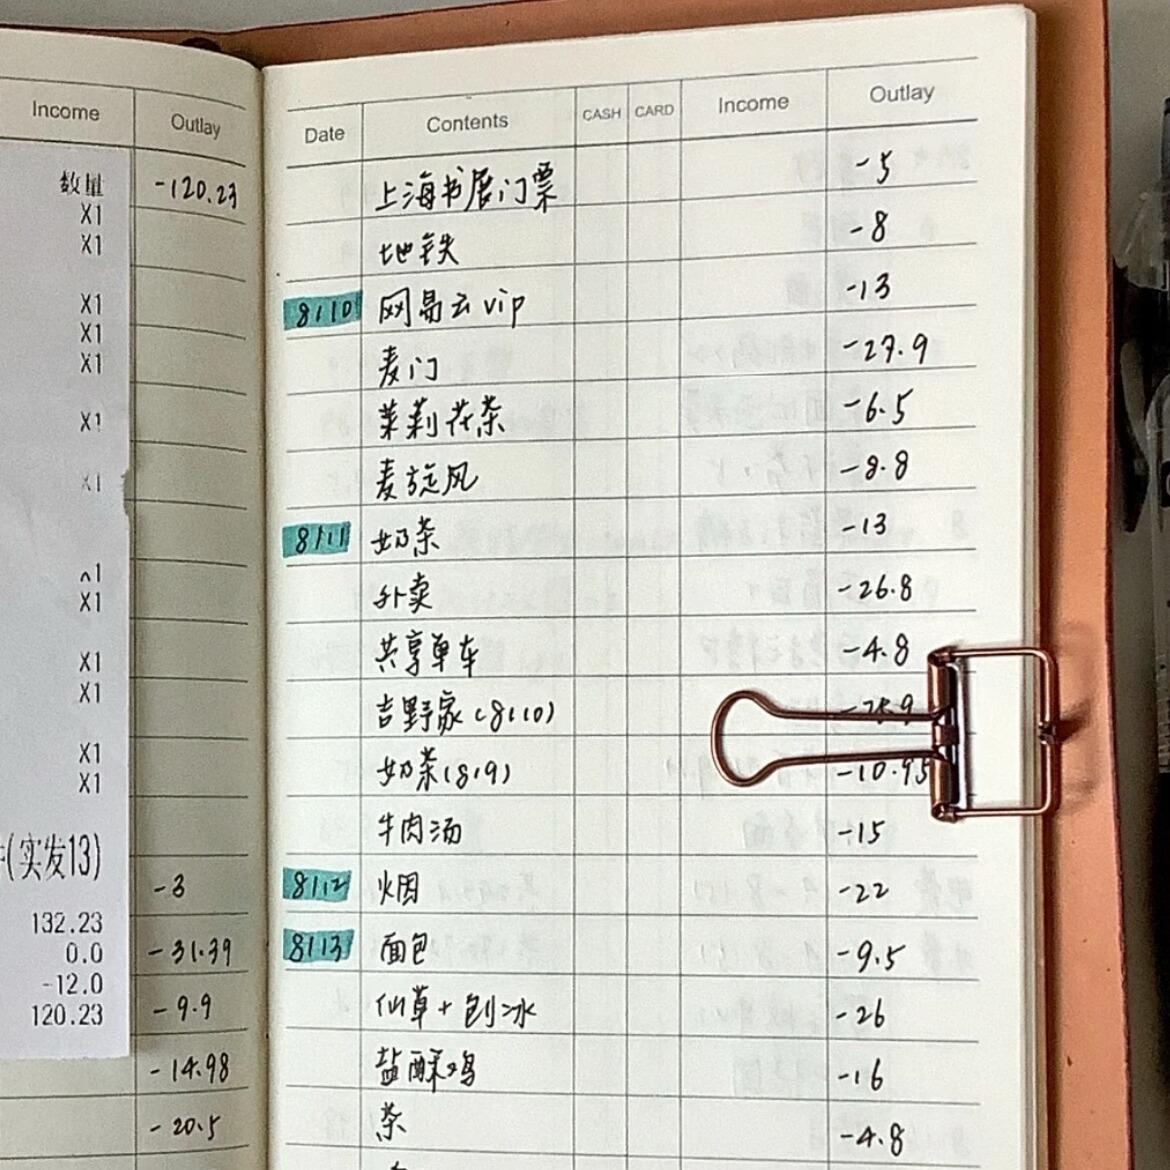 Income Outlay
数量 -120.23
X1
X1
X1
X1
X1
X1
X1
X1
X1
X1
X1
X1
X1
(实发13)
-3
132.23
0.0 -31.39
-12.0
120.23 -9.9
-14.98
-20.5
Date Contents CASH CARD Income Outlay
上海书展门票 -5
地铁 -8
8/10 网易云vip -13
麦门 -27.9
茉莉花茶 -6.5
麦旋风 -8.8
8/11 奶茶 -13
外卖 -26.8
共享单车 -4.8
吉野家(8/10)
奶茶(8/9) -10.95
牛肉汤 -15
8/12 烟 -22
8/13 面包 -9.5
仙草+刨冰 -26
盐酥鸡 -16
茶 -4.8